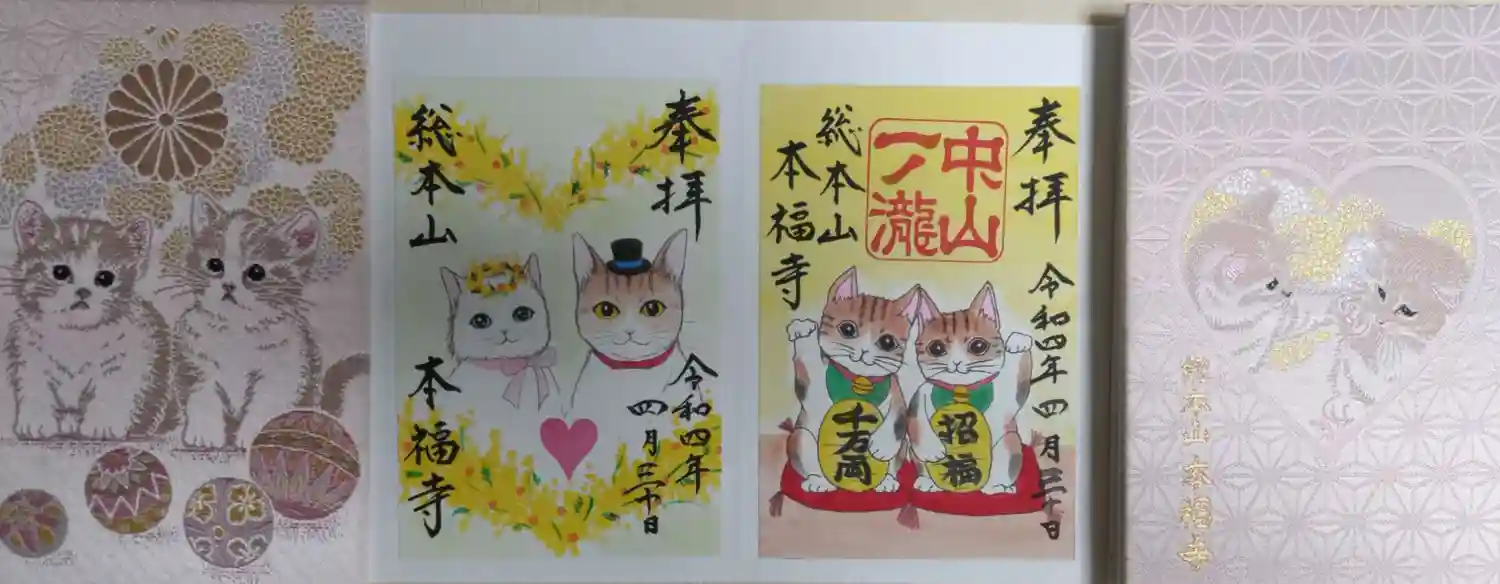 奉拝
令和四年
四月三十日
総本山
本福寺
奉拝
令和四年四月三十日
中山
一ノ瀧
総本山
本福寺
千万両
招福
総本山本福寺